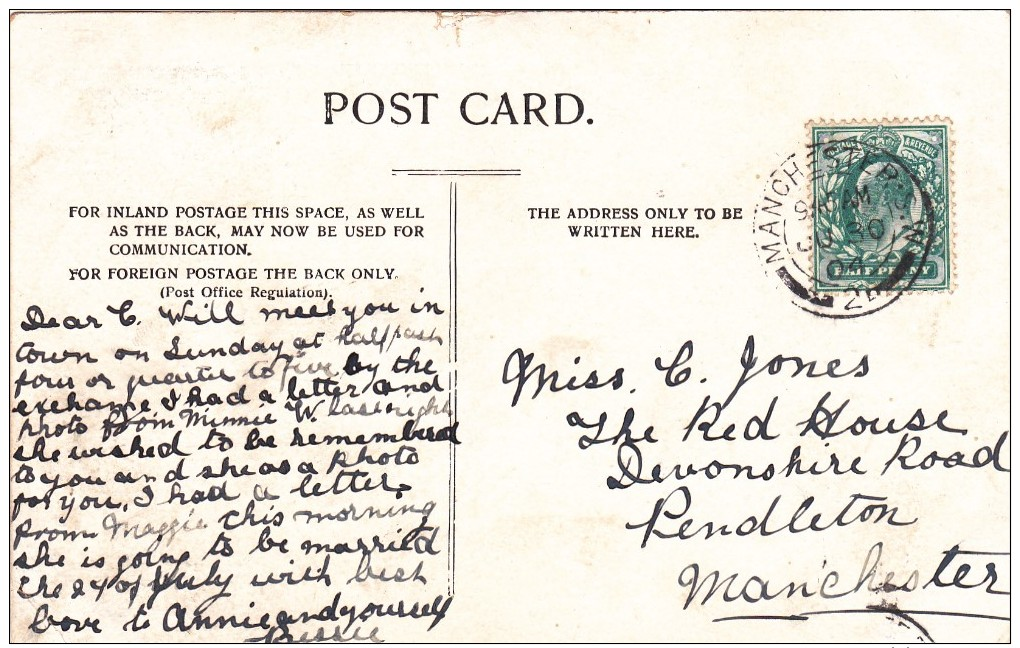 POST CARD.
FOR INLAND POSTAGE THIS SPACE, AS WELL
AS THE BACK, MAY NOW BE USED FOR
COMMUNICATION.
FOR FOREIGN POSTAGE THE BACK ONLY.
(Post Office Regulation).
THE ADDRESS ONLY TO BE
WRITTEN HERE.
POSTAGE & REVENUE
HALFPENNY
MANCHESTER S.W
9 AM
30
04
Dear C. Will meet you in
town on Sunday at half past
four or quarter to five by the
exchange I had a letter and
photo from Minnie W. last night
she wished to be remembered
to you and she as a photo
for you. I had a letter
from Maggie this morning
she is going to be married
the 24 of July with best
love to Annie and yourself
Bessie
Miss. C. Jones
The Red House
Devonshire Road
Pendleton
Manchester